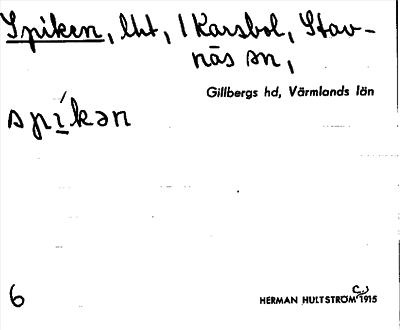 Spiken, lht, 1 Karsbol, Stav-
näs sn,
Gillbergs hd, Värmlands län
spíkən
6
HERMAN HULTSTRÖM 1915